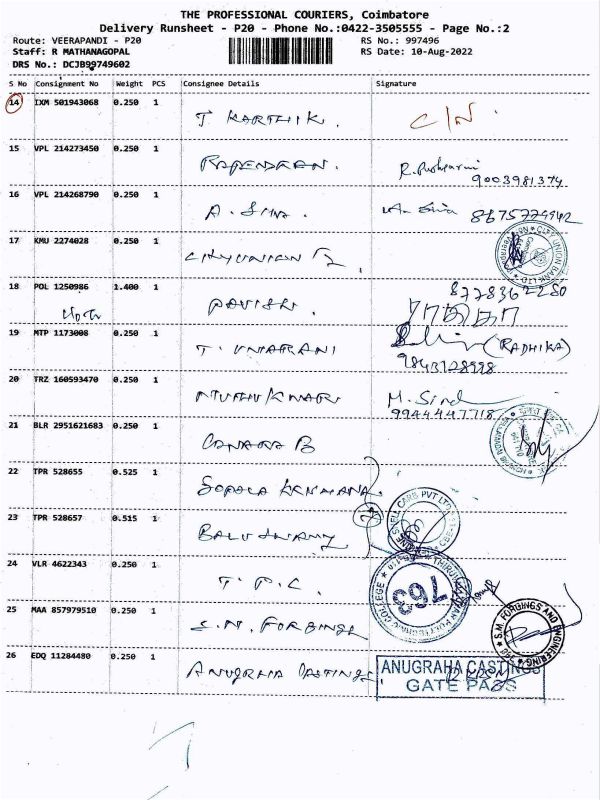 THE PROFESSIONAL COURIERS, Coimbatore
Delivery Runsheet - P20 - Phone No.:0422-3505555 - Page No.:2
Route: VEERAPANDI - P20
RS No.: 997496
Staff: R MATHANAGOPAL
RS Date: 10-Aug-2022
DRS No.: DCJB99749602
S No Consignment No Weight PCS Consignee Details Signature
14 IXM 501943068 0.250 1 T KARTHIK. C/N
15 VPL 214273450 0.250 1 RAJENDRAN.
9003981374
16 VPL 214268790 0.250 1 A. SIVA. 8675779942
17 KMU 2274028 0.250 1 CITY UNION
CITY UNION BANK LTD
18 POL 1250986 1.400 1 8778362280
19 MTP 1173008 0.250 1 T. UMARANI (RADHIKA)
9843128998
20 TRZ 160593470 0.250 1 MUTHU KUMAR M. Sind
9944447718
21 BLR 2951621683 0.250 1 CANARA B
22 TPR 528655 0.525 1
CARS PVT LTD
23 TPR 528657 0.515 1 BALUSWAMY
24 VLR 4622343 0.250 1 T. P. C.
POLYTECHNIC COLLEGE
763
25 MAA 857979510 0.250 1 S.M. FORGINGS
S.M. FORGINGS AND ENGINEERING
26 EDQ 11284480 0.250 1 ANUGRAHA CASTINGS
ANUGRAHA CASTINGS
GATE PASS